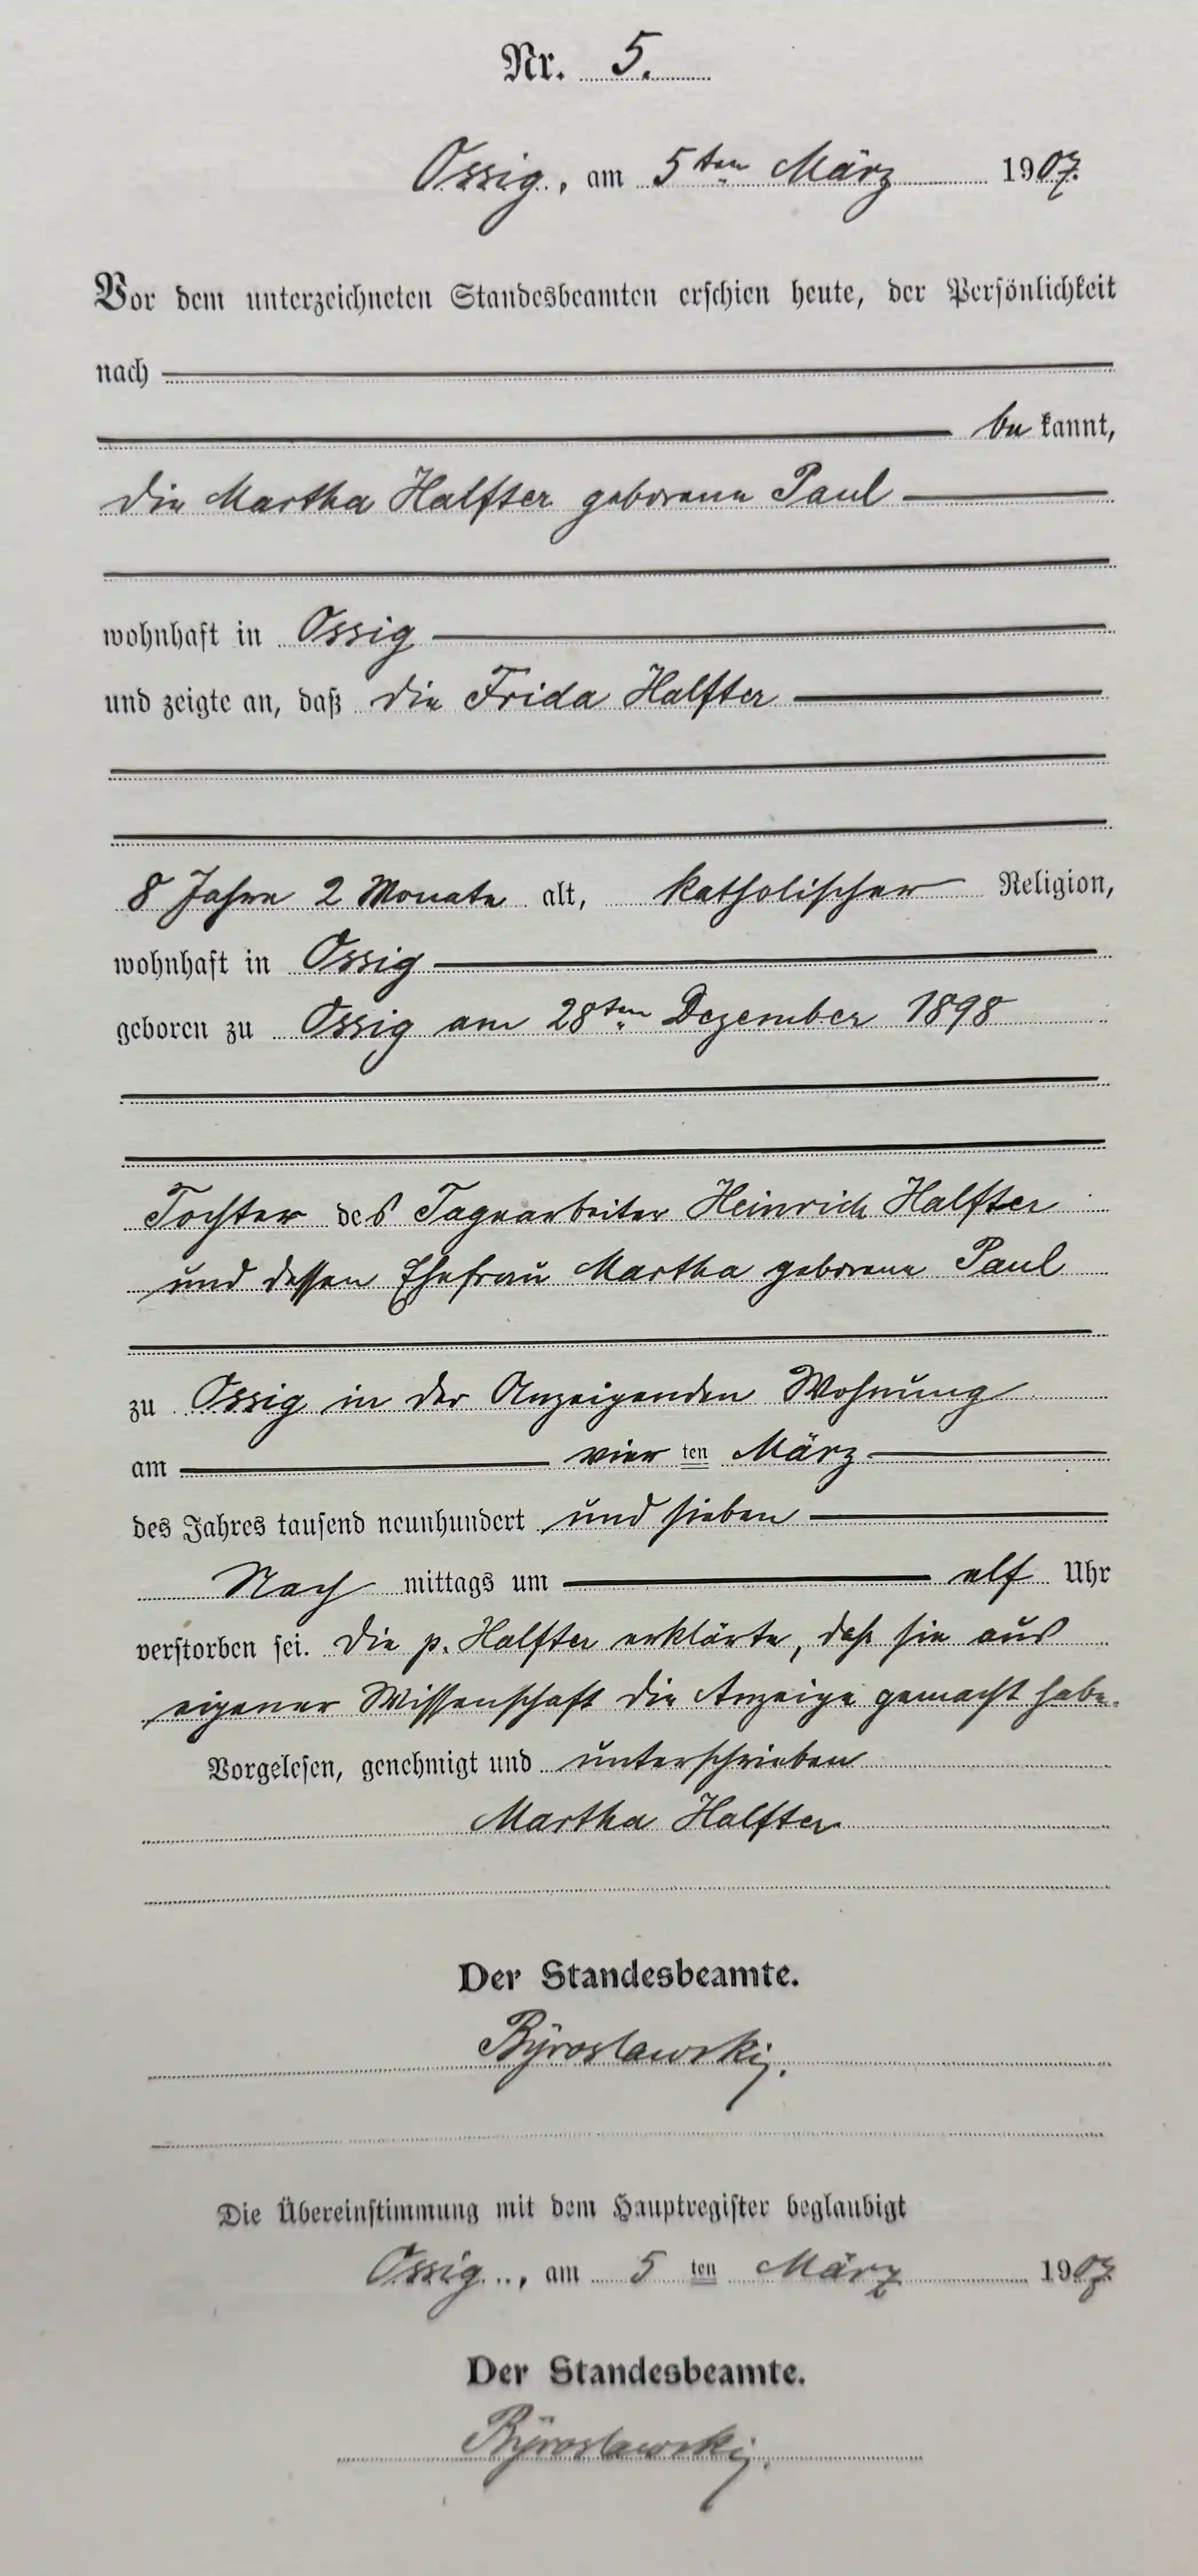 Nr. 5.
Ossig, am 5ten März 1907.
Vor dem unterzeichneten Standesbeamten erschien heute, der Persönlichkeit
nach
be kannt,
die Martha Halfter geborene Paul
wohnhaft in Ossig
und zeigte an, daß die Frida Halfter
8 Jahre 2 Monate alt, katholischer Religion,
wohnhaft in Ossig
geboren zu Ossig am 28ten Dezember 1898
Tochter des Tagearbeiter Heinrich Halfter
und dessen Ehefrau Martha geborene Paul
zu Ossig in der Anzeigenden Wohnung
am vier ten März
des Jahres tausend neunhundert und sieben
Nach mittags um elf Uhr
verstorben sei. Die p. Halfter erklärte, daß sie aus
eigener Wissenschaft die Anzeige gemacht habe.
Vorgelesen, genehmigt und unterschrieben
Martha Halfter
Der Standesbeamte.
Die Übereinstimmung mit dem Hauptregister beglaubigt
Ossig, am 5 ten März 1907.
Der Standesbeamte.